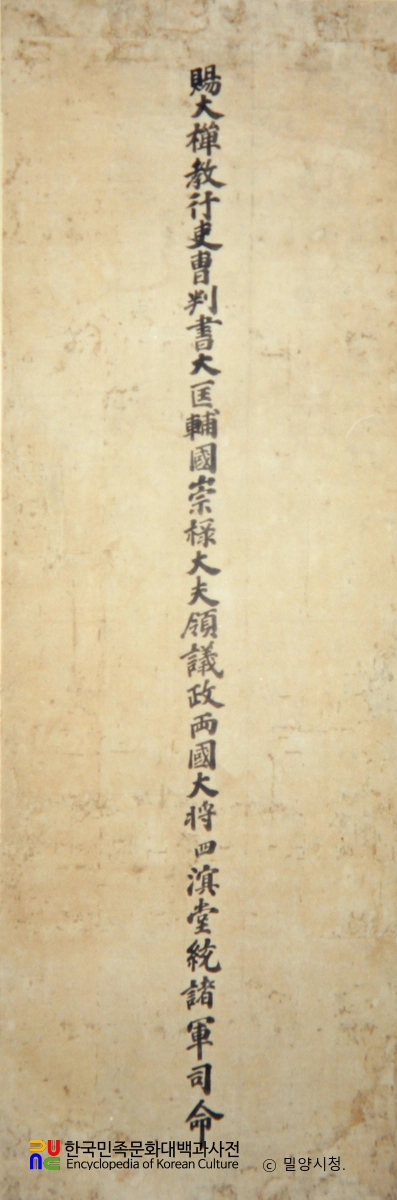 賜大禪教行吏曹判書大匡輔國崇祿大夫領議政兩國大將四溟堂統諸軍司命
한국민족문화대백과사전
Encyclopedia of Korean Culture
ⓒ 밀양시청.